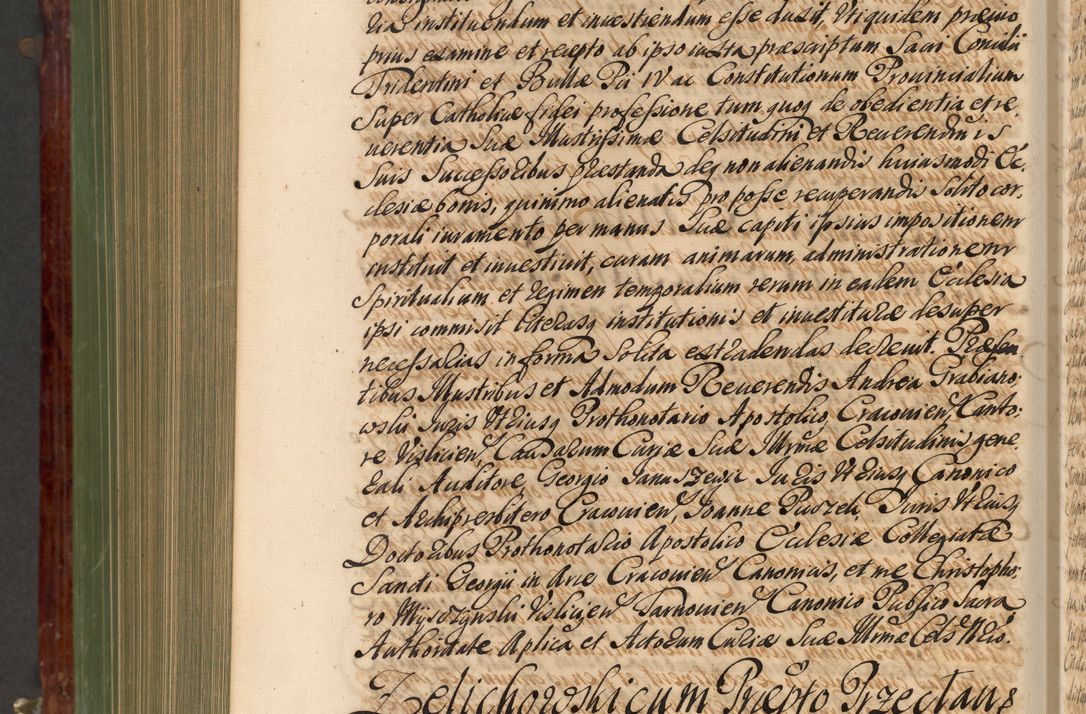 ria instituendum et investiendum esse duxit, Utiquidem prævio
prius examine et recepto ab ipso iuxta præscriptum Sacri Concilii
Tridentini et Bullæ Pii IV ac Constitutionum Provincialium
Super Catholicæ fidei professione tum quoq de obedientia et re
verentia Suæ Illustrissimæ Celsitudini et Reverendiss
Suis Successoribus præstanda deq non alienandis huiusmodi Ec,
clesiæ bonis, quinimo alienatis pro posse recuperandis Solito cor,
porali iuramento per manus Suæ capiti ipsius impositionem
instituit et investivit, curam animarum, administrationem
Spiritualium et regimen temporalium rerum in eadem Ecclesia
ipsi commisit literasq institutionis et investituræ desuper
necessarias in forma Solita extradendas decrevit. Præsen
tibus Illustribus et Admodum Reverendis Andrea Grabiano,
wski Iuris Utriusq Prothonotario Apostolico, Cracovien Canto,
re Vislicien, Causarum Curiæ Suæ Illrmæ Celsitudinis gene
rali Auditore, Georgio Januszewic Iuris Utriusq Canonico
et Archipresbitero Cracovien, Joanne Puszet, Iuris Utriusq
Doctoribus Prothonotario Apostolico Ecclesiæ Collegiatæ
Sancti Georgii in Arce Cracovien Canonicis, et me Christopho,
ro Mysczynski Vislicien Tarnovien Canonico Publico Sacra
Authoritate Aplica et Actorum Curiæ Suæ Illrmæ Cels Nrio.
Zelichowski cum Præpto Przectaus